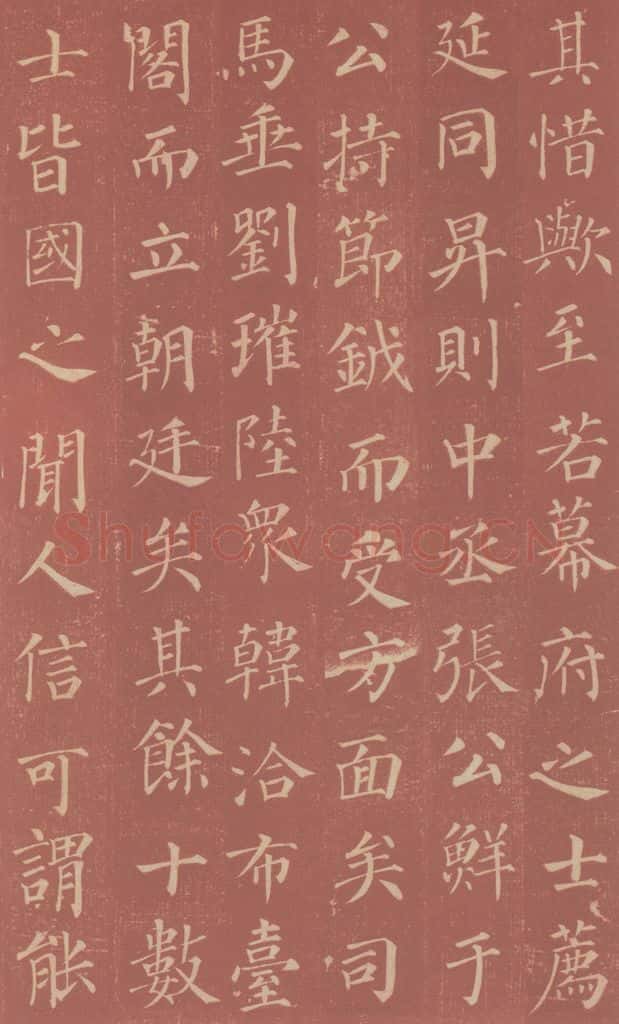 其惜歟至若幕府之士薦
延同昇則中丞張公鮮于
公持節鉞而受方面矣司
馬垂劉璀陸衆韓洽布臺
閣而立朝廷矣其餘十數
士皆國之聞人信可謂能
Shufawang.CN